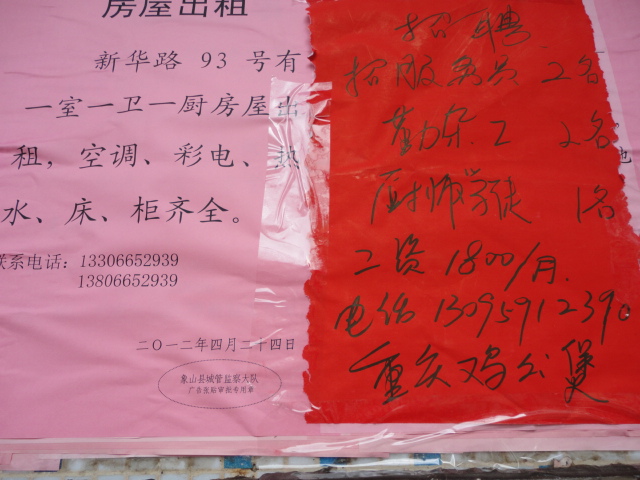 房屋出租
新华路 93 号有
一室一卫一厨房屋出
租，空调、彩电、热
水、床、柜齐全。
联系电话：13306652939
13806652939
二〇一二年四月二十四日
象山县城管监察大队
广告张贴审批专用章
招聘
招服务员 2名
勤杂工 2名
厨师学徒 1名
工资 1800/月
电话 13095912390
重庆鸡公煲